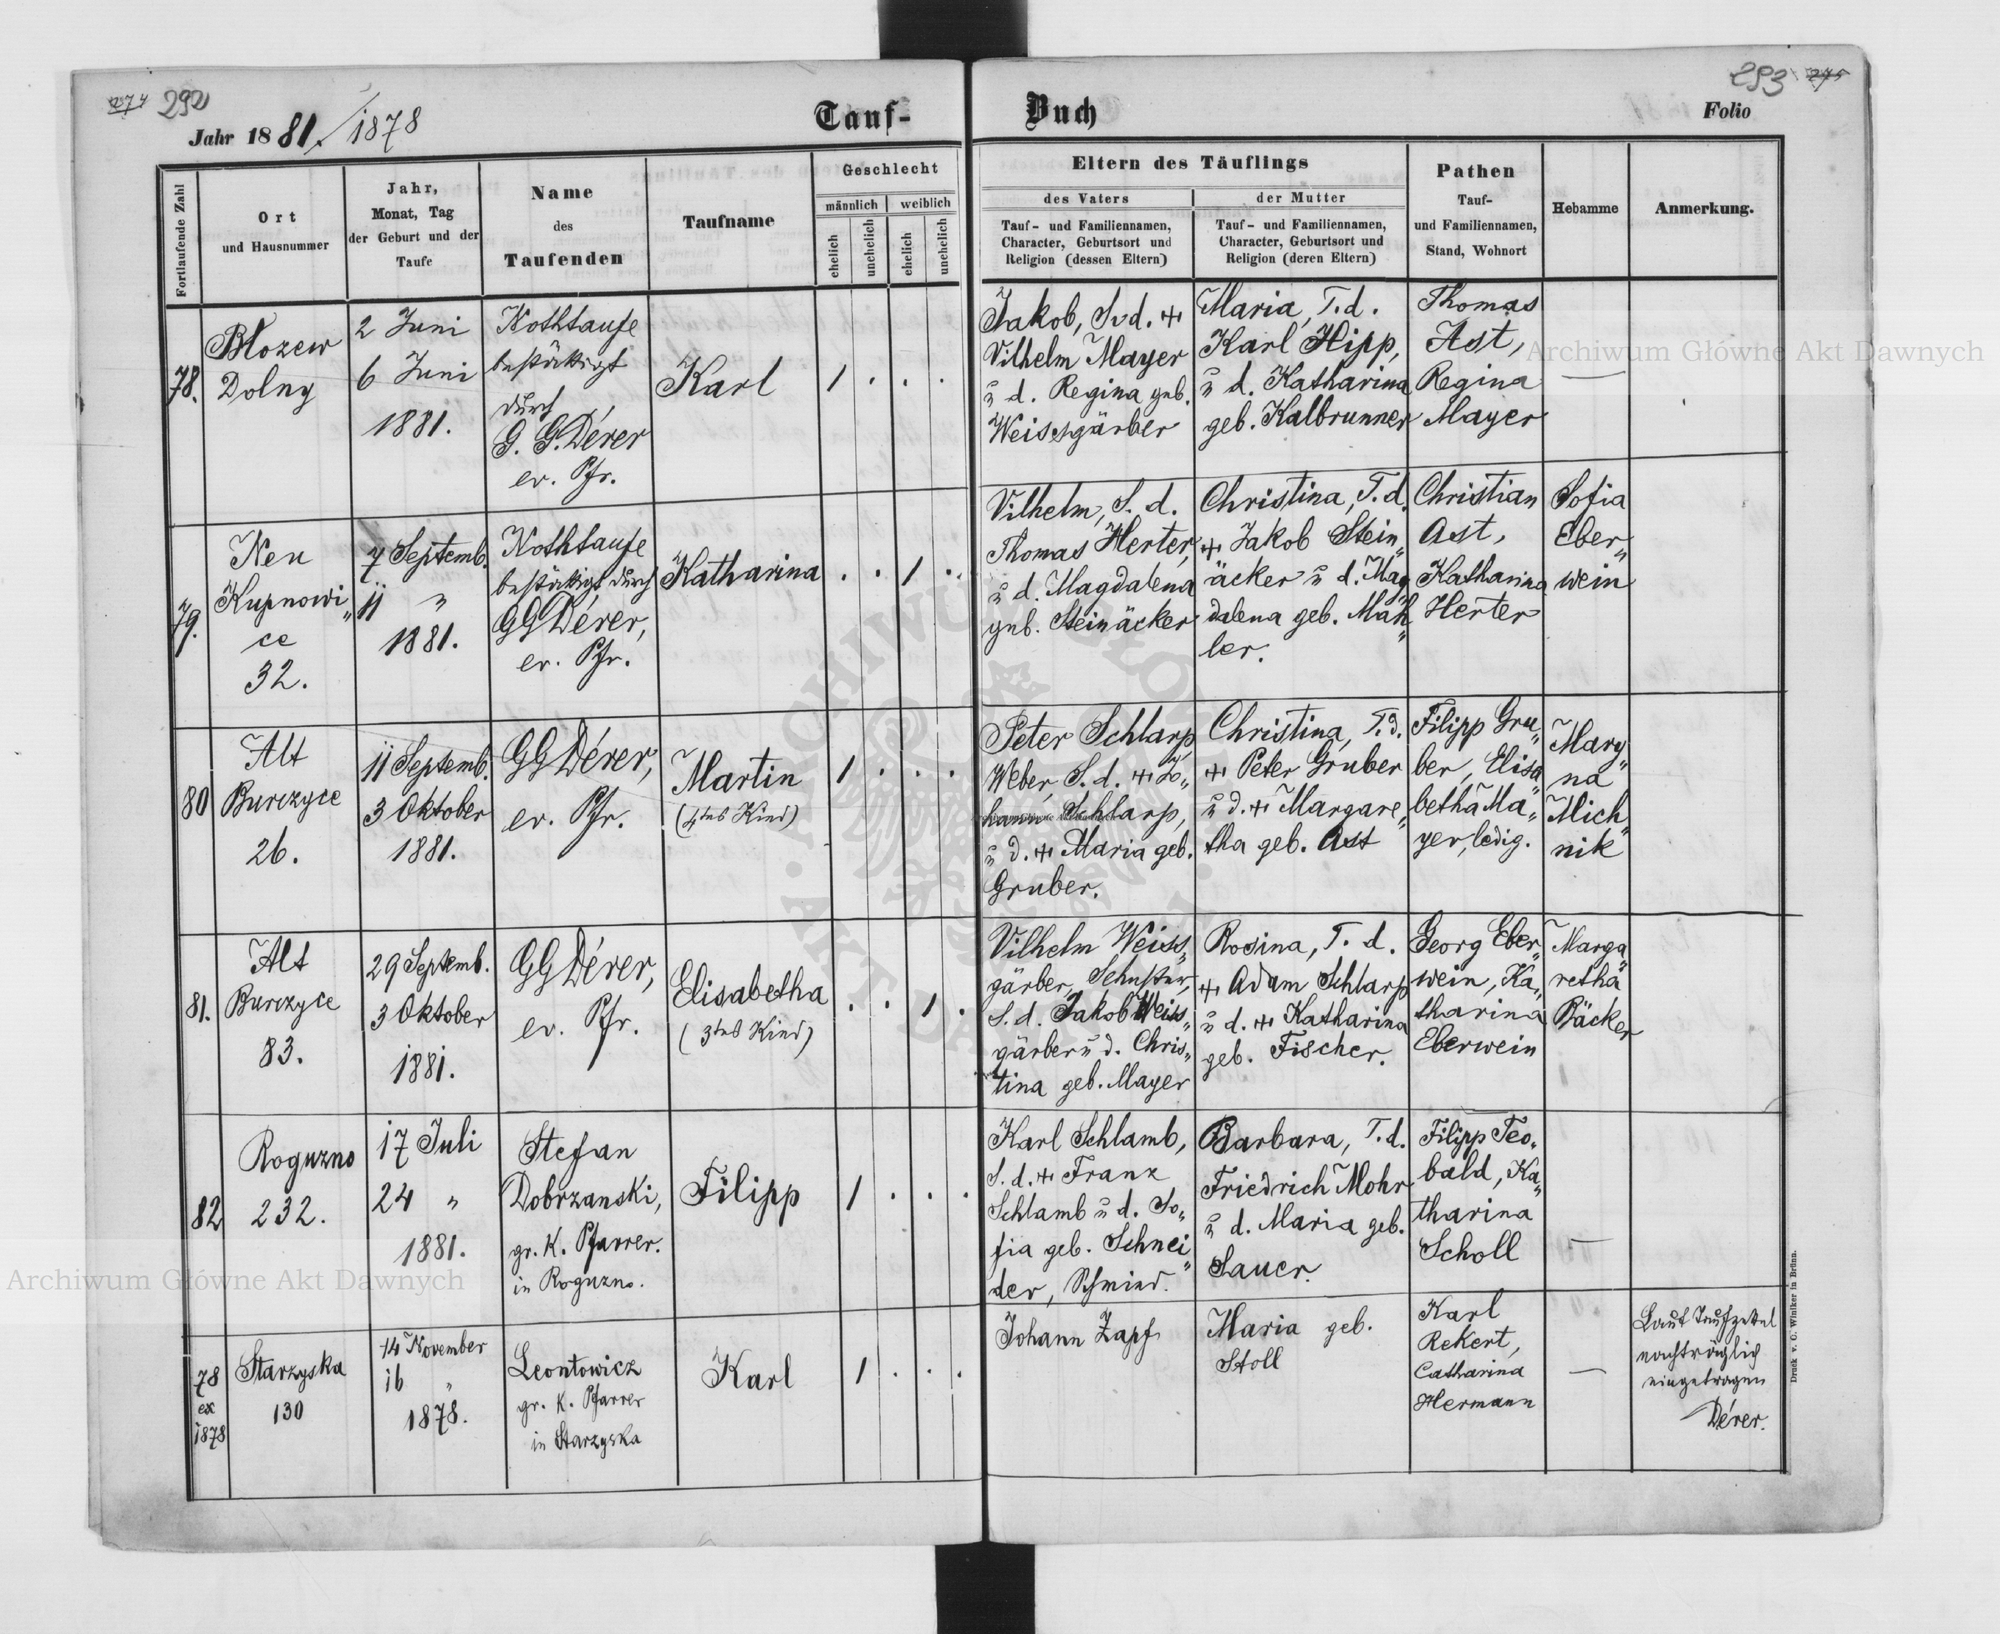 274 292
Jahr 1881. / 1878
Tauf-
Buch
293 275
Folio
Fortlaufende Zahl
Ort
und Hausnummer
Jahr,
Monat, Tag
der Geburt und der
Taufe
Name
des
Taufenden
Taufname
Geschlecht
männlich
weiblich
ehelich
unehelich
ehelich
unehelich
Eltern des Täuflings
des Vaters
Tauf- und Familiennamen,
Character, Geburtsort und
Religion (dessen Eltern)
der Mutter
Tauf- und Familiennamen,
Character, Geburtsort und
Religion (deren Eltern)
Pathen
Tauf-
und Familiennamen,
Stand, Wohnort
Hebamme
Anmerkung.
78.
Błozew
Dolny
2 Juni
6 Juni
1881.
Nothtaufe
bestättigt
durch
G. G. Dérer
ev. Pfr.
Karl
1 . . .
Jakob, S. d. +
Vilhelm Mayer
u d. Regina geb.
Weissgärber
Maria, T. d.
Karl Hipp,
u d. Katharina
geb. Kalbrunner
Thomas
Ast,
Regina
Mayer
—
79.
Neu
Kupnowi„
ce
32.
7 Septemb.
11 „
1881.
Nothtaufe
bestättigt durch
GG Dérer,
ev. Pfr.
Katharina
. . 1 .
Vilhelm, S. d.
Thomas Herter,
u d. Magdalena
geb. Steinäcker
Christina, T. d.
+ Jakob Stein„
äcker u d. Mag„
dalena geb. Mah„
ler.
Christian
Ast,
Katharina
Herter
Sofia
Eber„
wein
80
Alt
Burczyce
26.
11 Septemb.
3 Oktober
1881.
GG Dérer,
ev. Pfr.
Martin
(4tes Kind)
1 . . .
Peter Schlarp
Weber, S. d. + Jo„
hann Schlarp,
u d. + Maria geb.
Gruber.
Christina, T. d.
+ Peter Gruber
u d. + Margare„
tha geb. Ast
Filipp Gru„
ber, Elisa„
betha Ma„
yer, ledig.
Mary„
na
Mich„
nik
81.
Alt
Burczyce
83.
29 Septemb.
3 Oktober
1881.
GG Dérer,
ev. Pfr.
Elisabetha
(3tes Kind)
. . 1 .
Vilhelm Weiss„
gärber, Schuster,
S. d. Jakob Weiss„
gärber u d. Chris„
tina geb. Mayer
Rosina, T. d.
+ Adam Schlarp
u d. + Katharina
geb. Fischer.
Georg Eber„
wein, Ka„
tharina
Eberwein
Marga„
retha
Bäcker
82
Roguzno
232.
17 Juli
24 „
1881.
Stefan
Dobrzanski,
gr. K. Pfarrer.
in Roguzno.
Filipp
1 . . .
Karl Schlamb,
S. d. + Franz
Schlamb u d. So„
fia geb. Schnei„
der, Schmied.
Barbara, T. d.
Friedrich Mohr
u d. Maria geb.
Sauer.
Filipp Teo„
bald, Ka„
tharina
Scholl
—
78
ex
1878
Starzyska
130
14 November
16 „
1878.
Leontowicz
gr. K. Pfarrer
in Starzyska
Karl
1 . . .
Johann Zapf
Maria geb.
Stoll
Karl
Rekert,
Catharina
Hermann
—
Laut Taufzettel
nachträglich
eingetragen
Dérer.
Druck v. C. Winiker in Brünn.
Archiwum Główne Akt Dawnych
Archiwum Główne Akt Dawnych